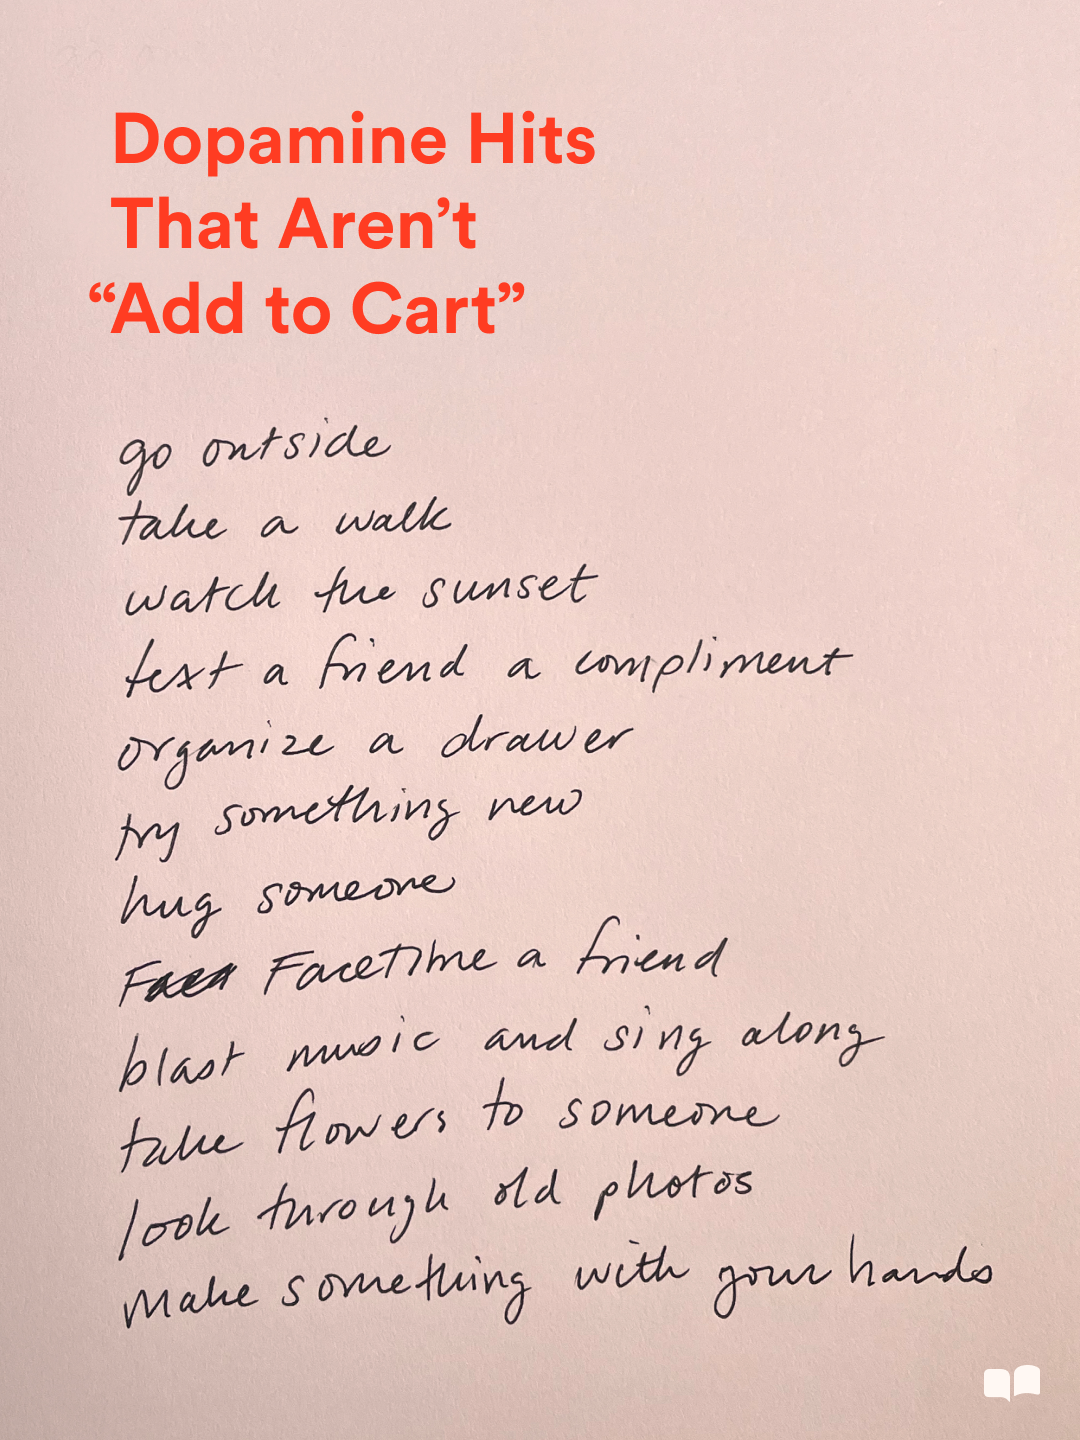 Dopamine Hits
That Aren’t
“Add to Cart”
go outside
take a walk
watch the sunset
text a friend a compliment
organize a drawer
try something new
hug someone
FaceTime a friend
blast music and sing along
take flowers to someone
look through old photos
make something with your hands